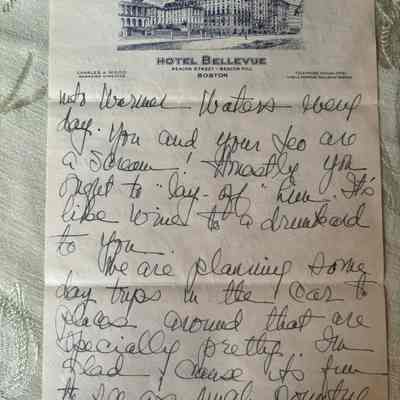 HOTEL BELLEVUE
BEACON STREET - BEACON HILL
BOSTON
CHARLES A. WOOD
MANAGING DIRECTOR
into Warmer Waters every
day. You and your Leo are
a scream! Honestly you
ought to "lay-off" him. It's
like wine to a drunkard
to you.
We are planning some
day trips in the car to
places around that are
specially pretty. I'm
glad, cause its fun
to see